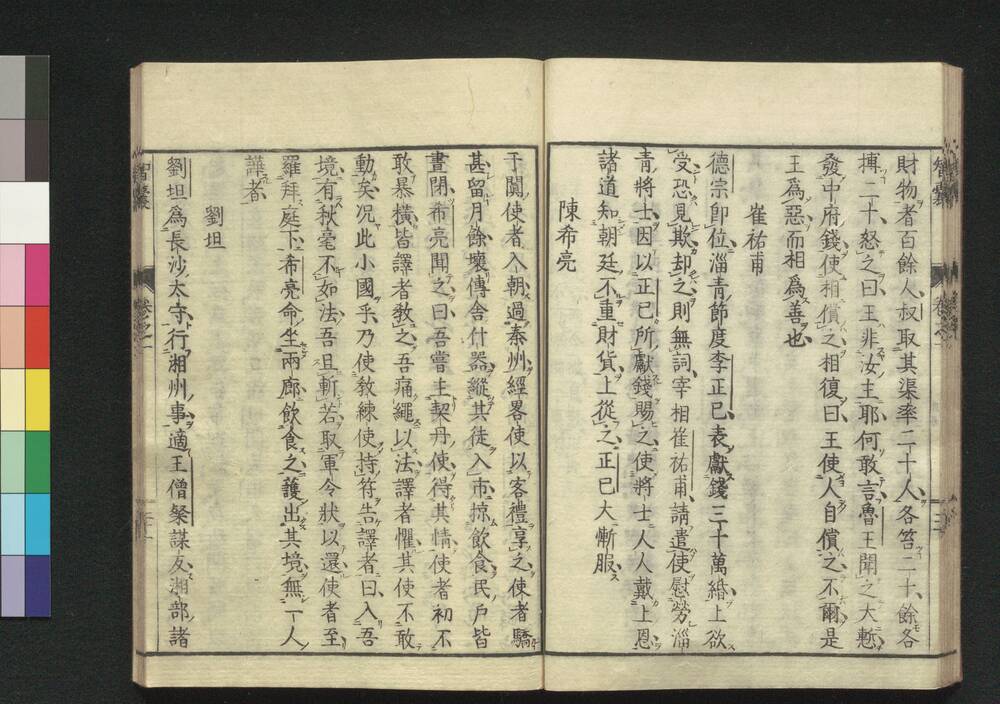 財物者百餘人叔取其渠率二十人各笞二十餘各
搏二十怒之曰王非汝主耶何敢言魯王聞之大慙
發中府錢使相償之相復曰王使人自償之不爾是
王爲惡而相爲善也
崔祐甫
德宗即位淄青節度李正已表獻錢三十萬緡上欲
受恐見欺却之則無詞宰相崔祐甫請遣使慰勞淄
青將士因以正已所獻錢賜之使將士人人戴上恩
諸道知朝廷不重財貨上從之正已大慚服
陳希亮
于闐使者入朝過秦州經畧使以客禮享之使者驕
甚留月餘壞傳舍什器縱其徒入市掠飲食民戶皆
晝閉希亮聞之曰吾嘗主契丹使得其情使者初不
敢暴橫皆譯者教之吾痛繩以法譯者懼其使不敢
動矣况此小國乎乃使教練使持符告譯者曰入吾
境有秋毫不如法吾且斬若取軍令狀以還使者至
羅拜庭下希亮命坐兩廊飲食之護出其境無一人
譁者
劉坦
劉坦爲長沙太守行湘州事適王僧粲謀反湘部諸
智囊
卷之一